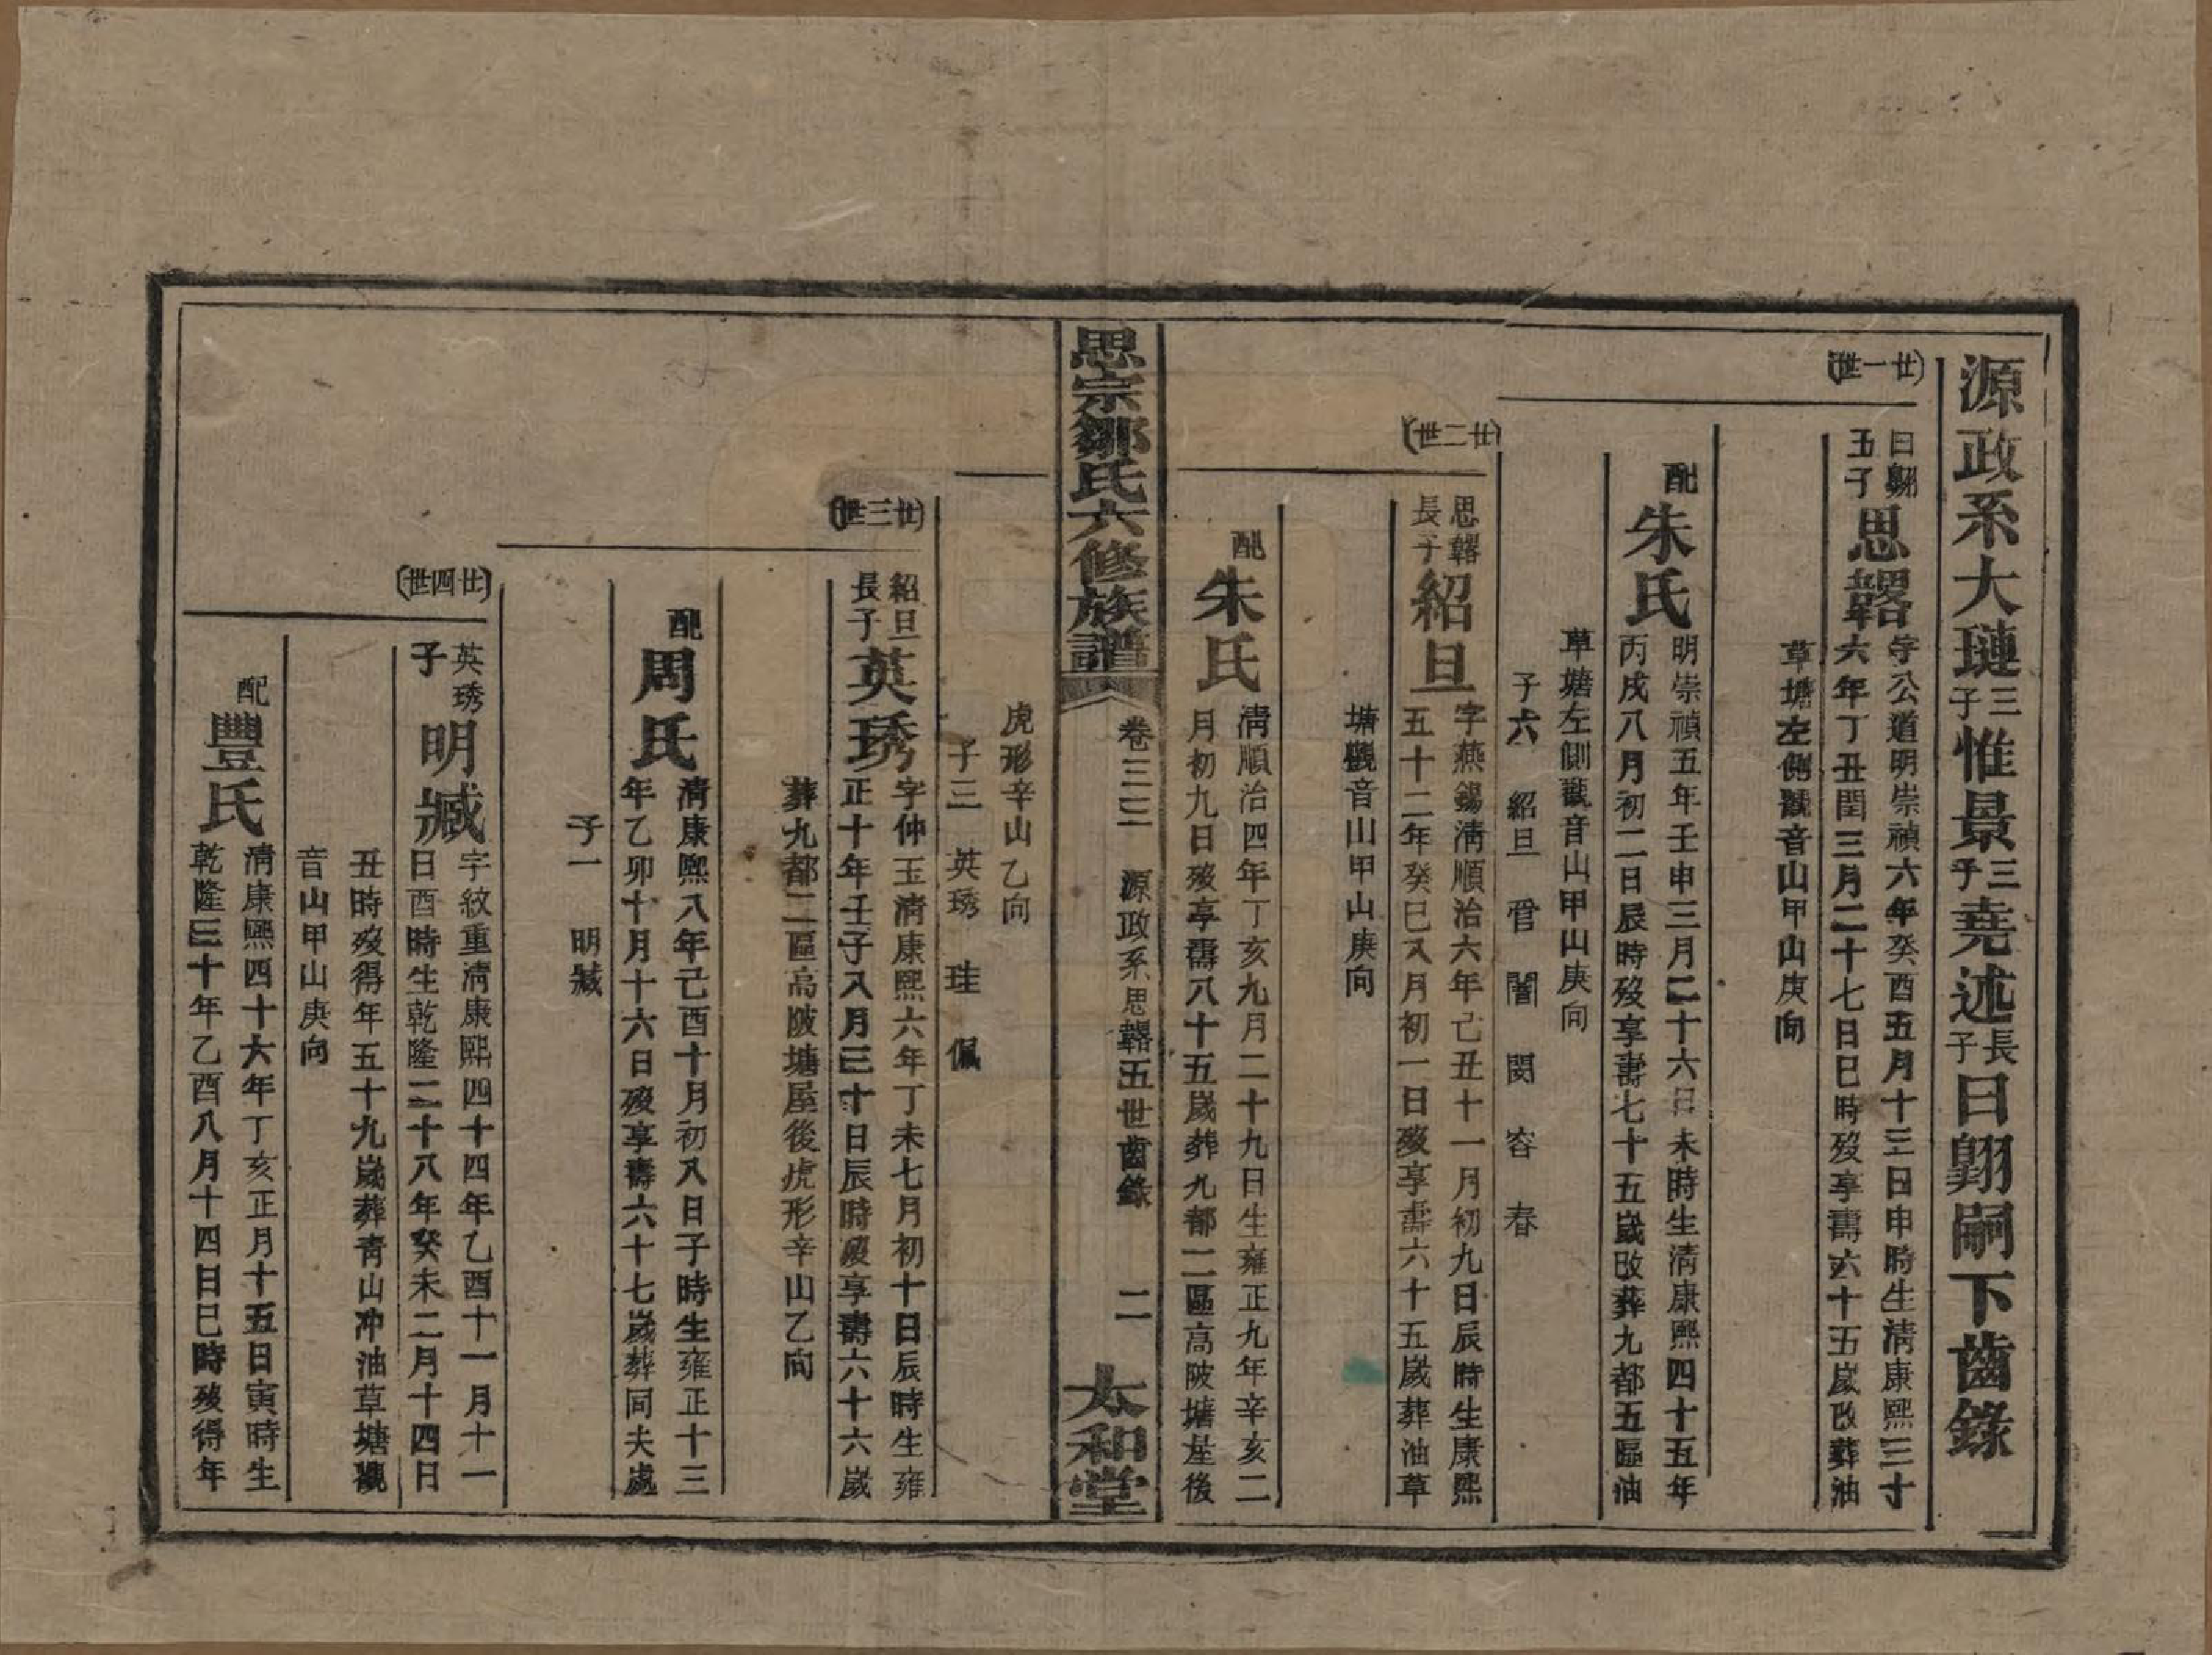 源政系大璉三子惟景三子堯述長子曰翺嗣下齒錄
廿一世
曰翺五子
思
字公道明崇禎六年癸酉五月十三日申時生清康熙三十
六年丁丑閏三月二十七日巳時歿享壽六十五歲改葬油
草塘左側觀音山甲山庚向
配朱氏
明崇禎五年壬申三月二十六日未時生清康熙四十五年
丙戌八月初二日辰時歿享壽七十五歲改葬九都五區油
草塘左側觀音山甲山庚向
子六 紹旦 晉 誾 閔 容 春
廿二世
思 長子
紹旦
字燕錫清順治六年己丑十一月初九日辰時生康熙
五十二年癸巳八月初一日歿享壽六十五歲葬油草
塘觀音山甲山庚向
配朱氏
清順治四年丁亥九月二十九日生雍正九年辛亥二
月初九日歿享壽八十五歲葬九都二區高陂塘屋後
思宗鄒氏六修族譜
卷三三 源政系思 五世齒錄 二
太和堂
虎形辛山乙向
子三 英琇 珪 佩
廿三世
紹旦長子
英琇
字仲玉清康熙六年丁未七月初十日辰時生雍
正十年壬子八月三十日辰時歿享壽六十六歲
葬九都二區高陂塘屋後虎形辛山乙向
配周氏
清康熙八年己酉十月初八日子時生雍正十三
年乙卯十月十六日歿享壽六十七歲葬同夫處
子一 明臧
廿四世
英琇子
明臧
字紋重清康熙四十四年乙酉十一月十一
日酉時生乾隆二十八年癸未二月十四日
丑時歿得年五十九歲葬青山冲油草塘觀
音山甲山庚向
配豐氏
清康熙四十六年丁亥正月十五日寅時生
乾隆三十年乙酉八月十四日巳時歿得年